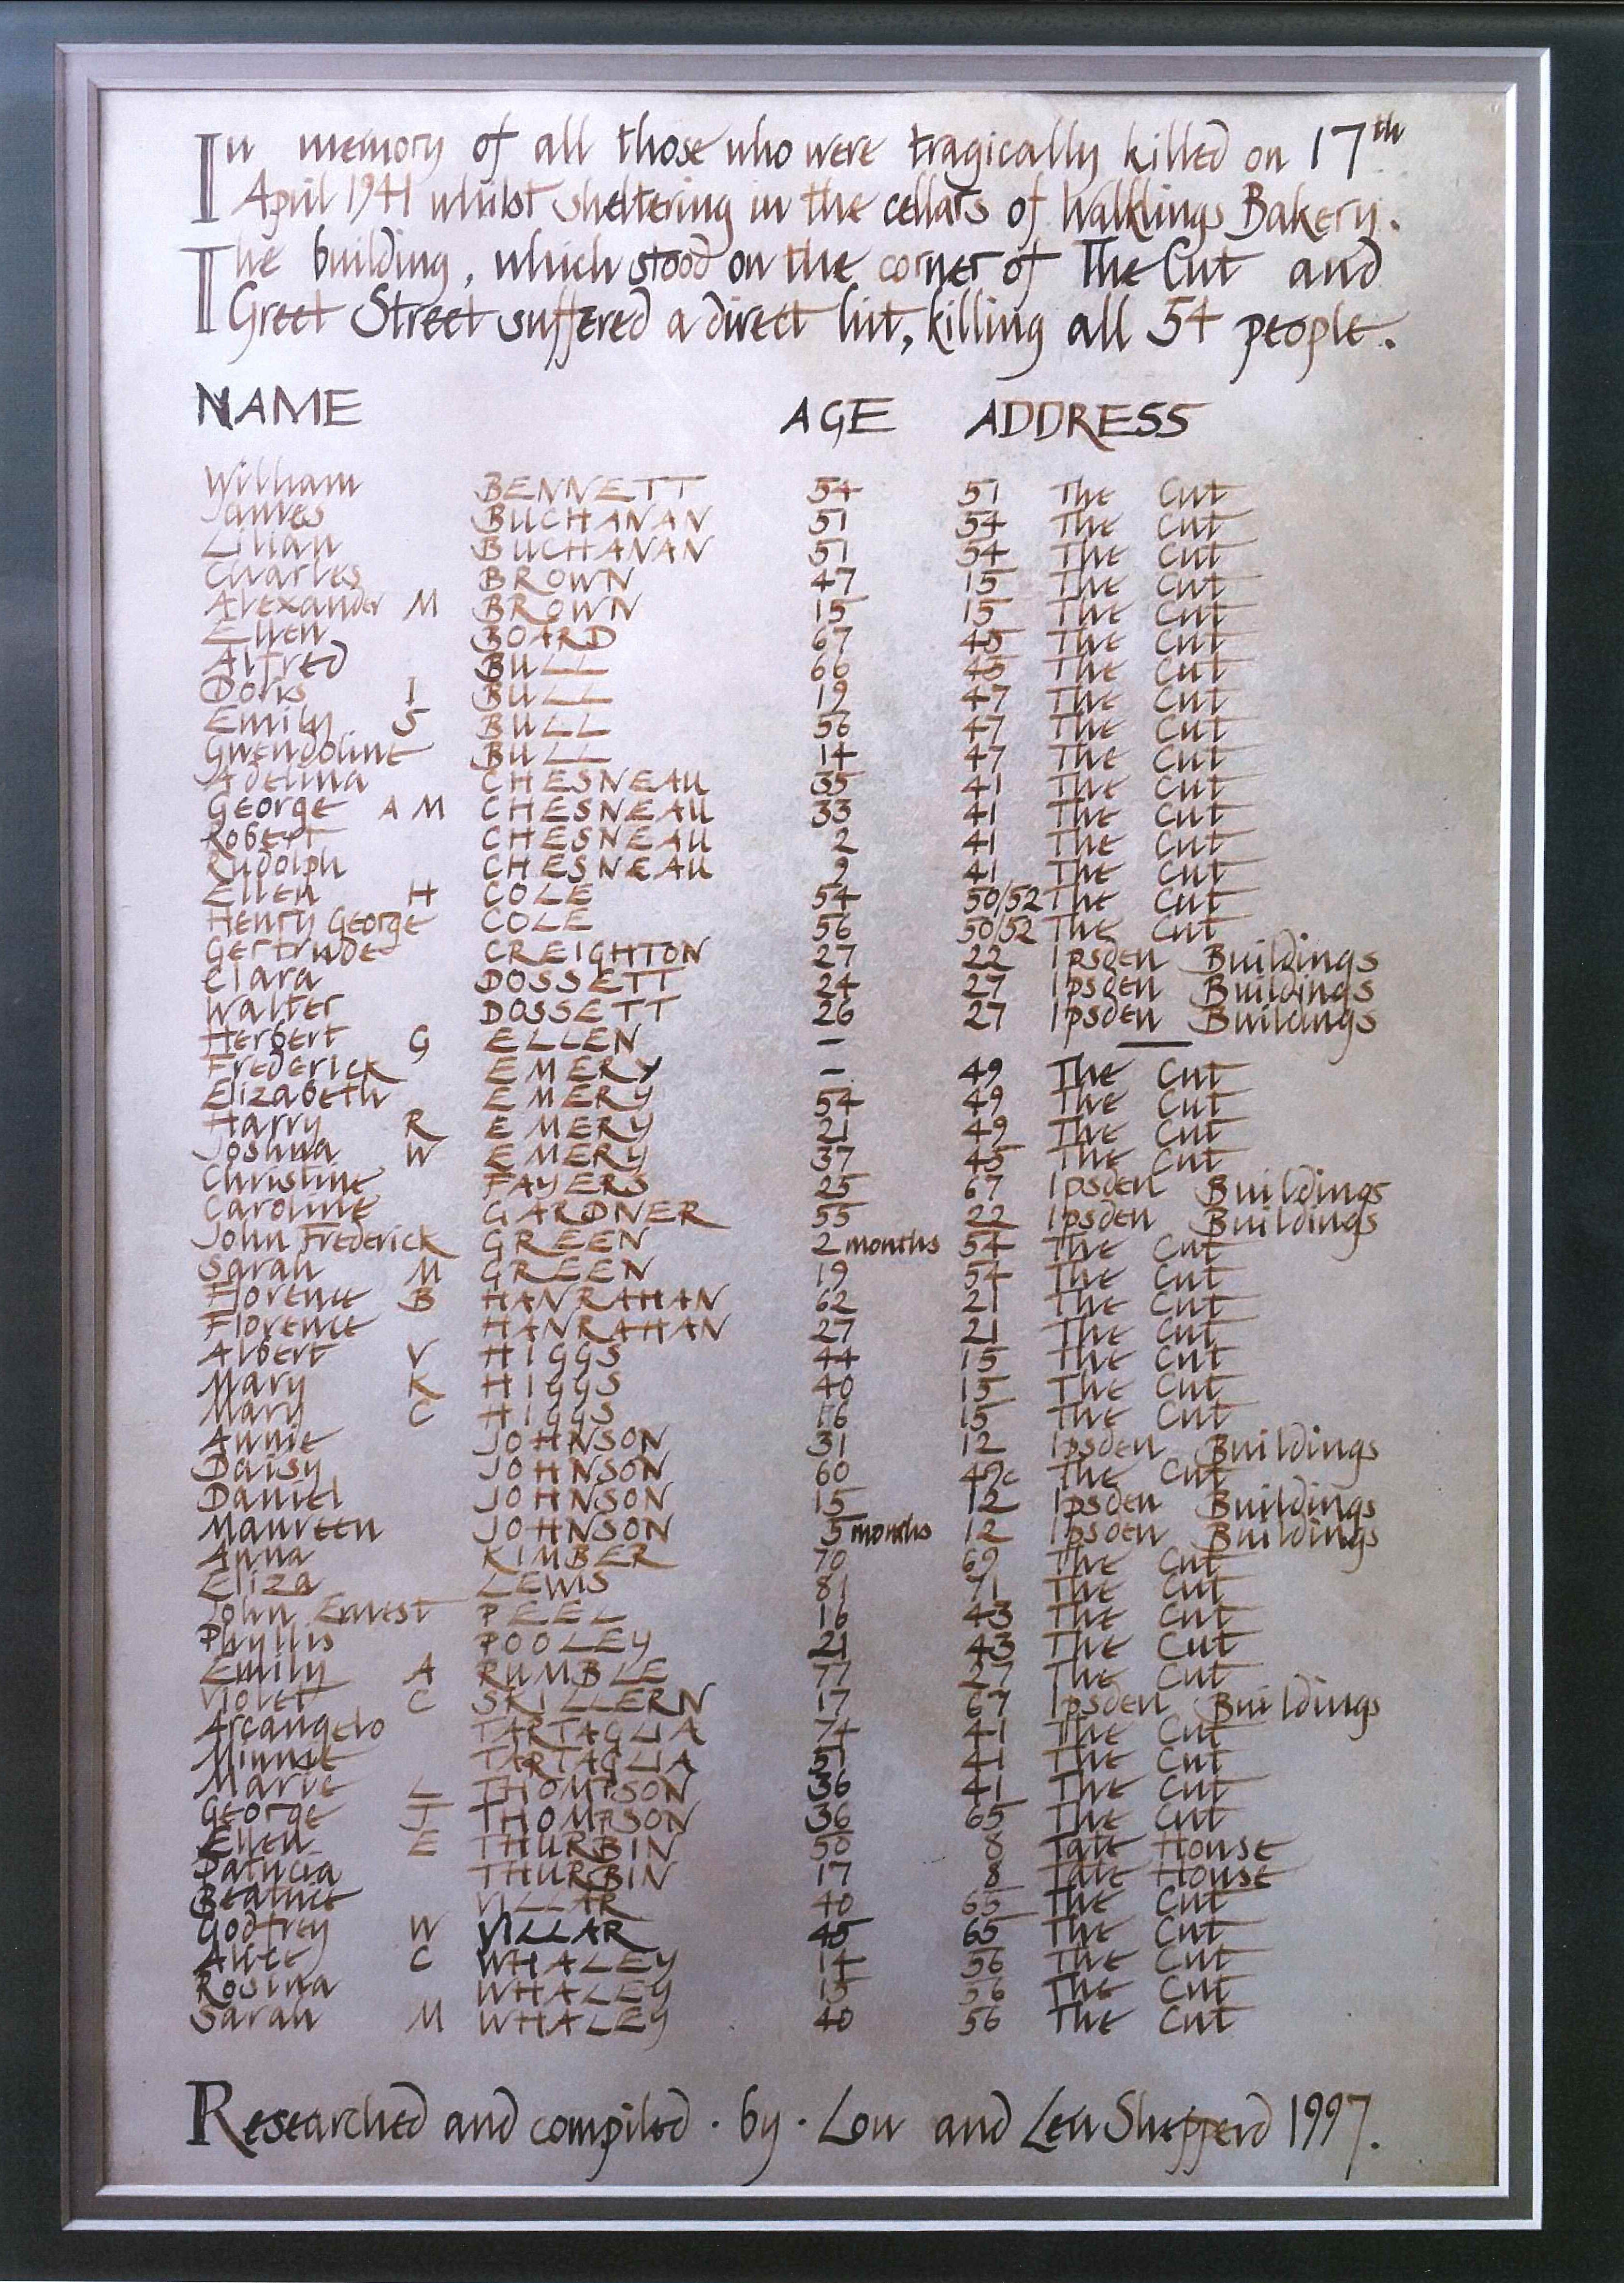 In memory of all those who were tragically killed on 17th
April 1941 whilst sheltering in the cellars of Walklings Bakery.
The building, which stood on the corner of The Cut and
Greet Street suffered a direct hit, killing all 54 people.
NAME AGE ADDRESS
William BENNETT 54 51 The Cut
James BUCHANAN 51 54 The Cut
Lilian BUCHANAN 51 54 The Cut
Charles BROWN 47 15 The Cut
Alexander M BROWN 15 15 The Cut
Ellen BOARD 67 45 The Cut
Alfred BULL 66 45 The Cut
Doris I BULL 19 47 The Cut
Emily S BULL 56 47 The Cut
Gwendoline BULL 14 47 The Cut
Adelina CHESNEAU 35 41 The Cut
George A M CHESNEAU 33 41 The Cut
Robert CHESNEAU 2 41 The Cut
Rudolph CHESNEAU 2 41 The Cut
Ellen H COLE 54 50/52 The Cut
Henry George COLE 56 50/52 The Cut
Gertrude CREIGHTON 27 22 Ipsden Buildings
Clara DOSSETT 24 27 Ipsden Buildings
Walter DOSSETT 26 27 Ipsden Buildings
Herbert G ELLEN – —
Frederick EMERY – 49 The Cut
Elizabeth EMERY 54 49 The Cut
Harry R EMERY 21 49 The Cut
Joshua W EMERY 37 45 The Cut
Christine FAYERS 25 67 Ipsden Buildings
Caroline GARDNER 55 22 Ipsden Buildings
John Frederick GREEN 2 months 54 The Cut
Sarah M GREEN 19 54 The Cut
Florence B HANRAHAN 62 21 The Cut
Florence HANRAHAN 27 21 The Cut
Albert V HIGGS 44 15 The Cut
Mary K HIGGS 40 15 The Cut
Mary C HIGGS 16 15 The Cut
Annie JOHNSON 31 12 Ipsden Buildings
Daisy JOHNSON 60 49c The Cut
Daniel JOHNSON 15 12 Ipsden Buildings
Maureen JOHNSON 5 months 12 Ipsden Buildings
Anna KIMBER 70 69 The Cut
Eliza LEWIS 81 71 The Cut
John Ernest PEEL 16 43 The Cut
Phyllis POOLEY 21 43 The Cut
Emily A RUMBLE 77 27 The Cut
Violet C SKILLERN 17 67 Ipsden Buildings
Arcangelo TARTAGLIA 74 41 The Cut
Minnie TARTAGLIA 51 41 The Cut
Marie L THOMPSON 36 41 The Cut
George J THOMPSON 36 65 The Cut
Ellen E THURBIN 50 8 Tait House
Patricia THURBIN 17 8 Tait House
Beatrice VILLAR 40 65 The Cut
Godfrey W VILLAR 45 65 The Cut
Alice C WHALEY 14 56 The Cut
Rosina WHALEY 15 56 The Cut
Sarah M WHALEY 40 56 The Cut
Researched and compiled · by · Lou and Len Shepperd 1997.